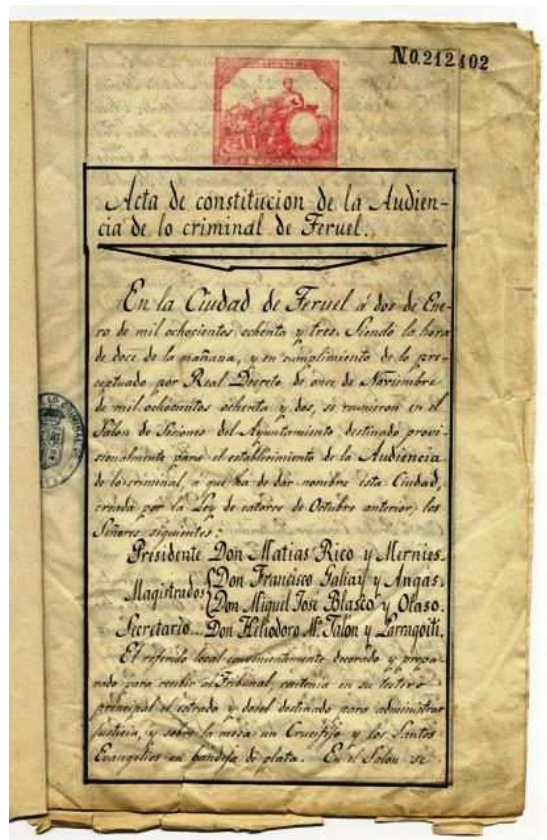 N0.212,102
Acta de constitucion de la Audien-
cia de lo criminal de Teruel.
En la Ciudad de Teruel á dos de Ene-
ro de mil ochocientos ochenta y tres. Siendo la hora
de doce de la mañana, y en cumplimiento de lo pre-
ceptuado por Real Decreto de once de Noviembre
de mil ochocientos ochenta y dos, se reunieron en el
Salon de Sesiones del Ayuntamiento, destinado provi-
sionalmente para el establecimiento de la Audiencia
de lo criminal, a que ha de dar nombre esta Ciudad,
creada por la Ley de catorce de Octubre anterior, los
Señores siguientes:
Presidente Don Matias Rico y Mernies.
Magistrados Don Francisco Galiay y Angas.
Don Miguel José Blasco y Olaso.
Secretario... Don Heliodoro Mª Talon y Larragoiti.
El referido local convenientemente decorado y prepa-
rado para recibir al Tribunal, contenia en su testero
principal el estrado y dosel destinado para administrar
justicia, y sobre la mesa un Crucifijo y los Santos
Evangelios en bandeja de plata. En el Salon se